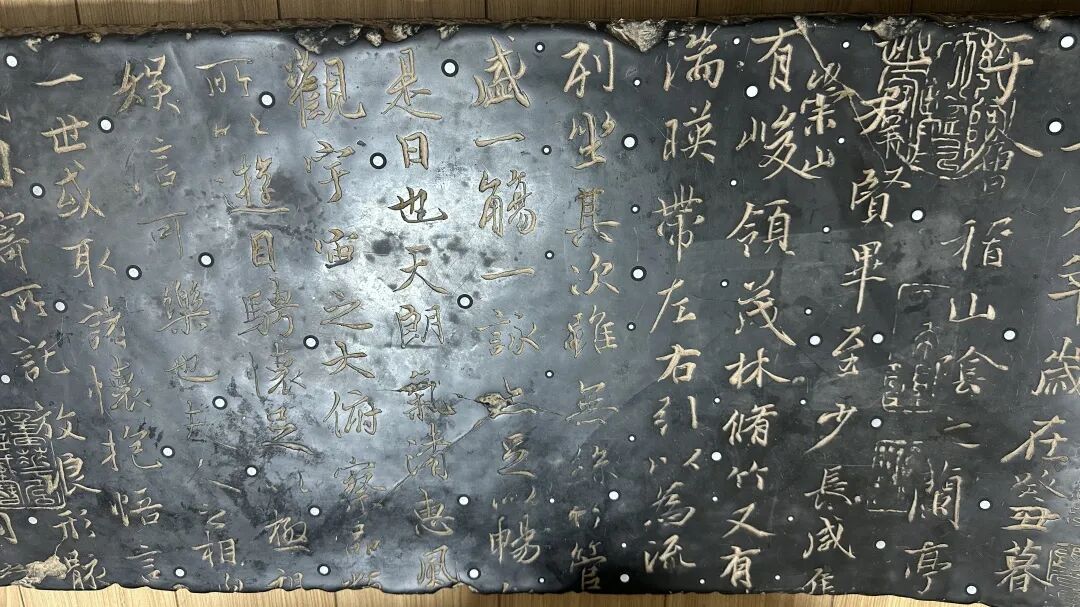 年歲在癸丑暮
稽山陰之蘭亭
羣賢畢至少長咸
崇山
有峻領茂林脩竹又有
湍暎帶左右引以為流
列坐其次雖無絲竹管
盛一觴一詠亦足以暢
是日也天朗氣清惠風
觀宇宙之大俯察品類
所以遊目騁懷足以極視
娛信可樂也夫人之相
一世或取諸懷抱悟言
寄所託放浪形骸